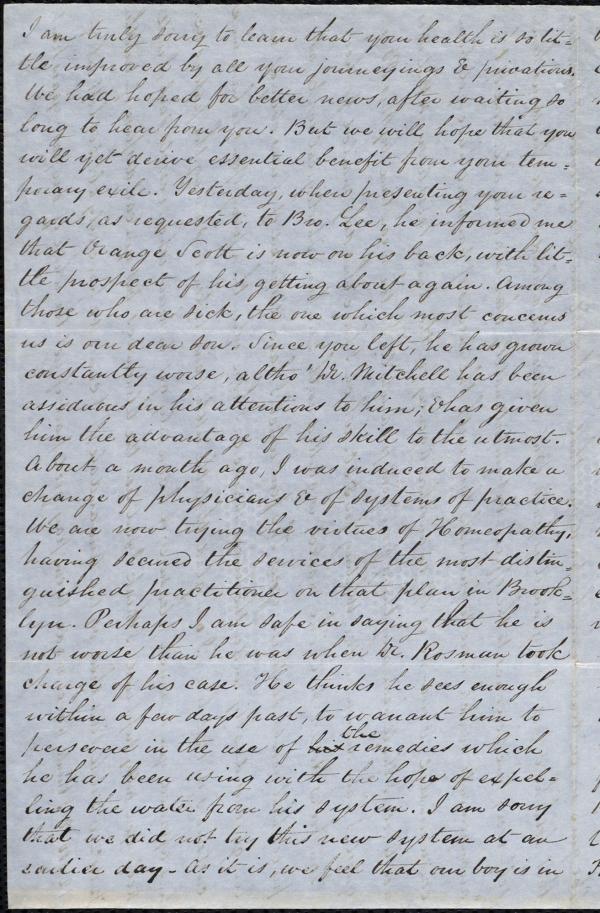 I am truly sorry to learn that your health is so lit=
tle improved by all your journeyings & privations.
We had hoped for better news, after waiting so
long to hear from you. But we will hope that you
will yet derive essential benefit from your tem=
porary exile. Yesterday, when presenting your re=
gards, as requested, to Bro. Lee, he informed me
that Orange Scott is now on his back, with lit=
tle prospect of his getting about again. Among
those who are sick, the one which most concerns
us is our dear son. Since you left, he has grown
constantly worse, altho' Dr. Mitchell has been
assiduous in his attentions to him; & has given
him the advantage of his skill to the utmost.
About a month ago, I was induced to make a
change of physicians & of systems of practice.
We are now trying the virtues of Homeopathy,
having secured the services of the most distin=
guished practitioner on that plan in Brook=
lyn. Perhaps I am safe in saying that he is
not worse than he was when Dr. Rosman took
charge of his case. He thinks he sees enough
within a few days past, to warrant him to
persevere in the use of his the remedies which
he has been using with the hope of expel=
ling the water from his system. I am sorry
that we did not try this new system at an
earlier day - As it is, we feel that our boy is in